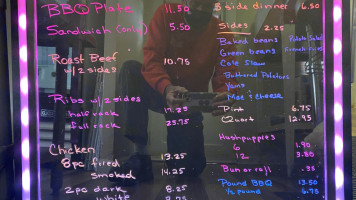 BBQ Plate 11.50
Sandwich (only) 5.50
Roast Beef
w/2 sides 10.75
Ribs w/2 sides
half rack 17.25
full rack 25.75
Chicken
8pc fried 13.25
smoked 14.25
2pc dark 8.25
white
3 side dinner 6.50
Sides 2.25
Baked beans Potato Salad
Green beans French Fries
Cole Slaw
Buttered Potatoes
Yams
Mac & Cheese
Pint 6.75
Quart 12.95
Hushpuppies
6 1.90
12 3.80
Bun or roll .95
Pound BBQ 13.50
½ pound 6.75